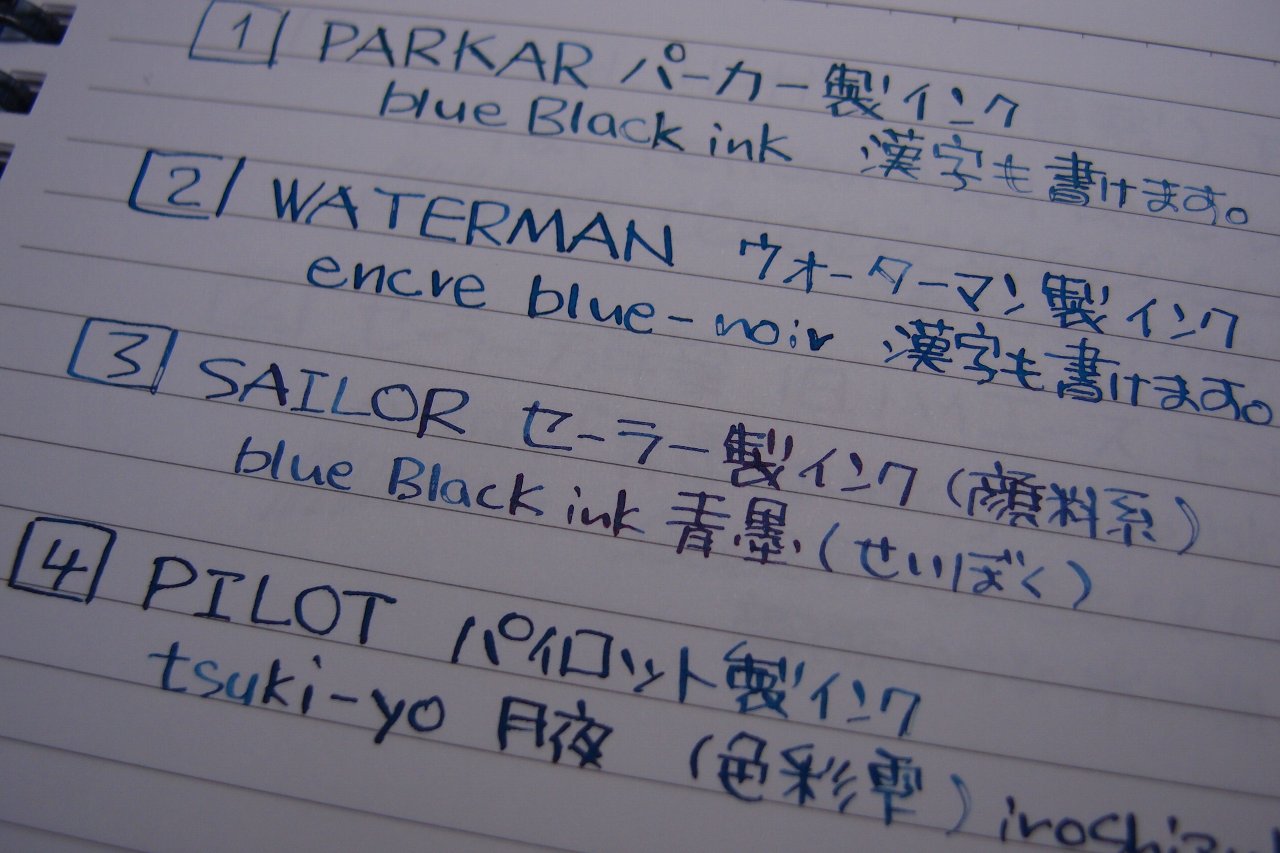 1 PARKAR パーカー製インク
blue Black ink 漢字も書けます。
2 WATERMAN ウォーターマン製インク
encre blue-noir 漢字も書けます。
3 SAILOR セーラー製インク(顔料系)
blue Black ink 青墨(せいぼく)
4 PILOT パイロット製インク
tsuki-yo 月夜 (色彩雫)